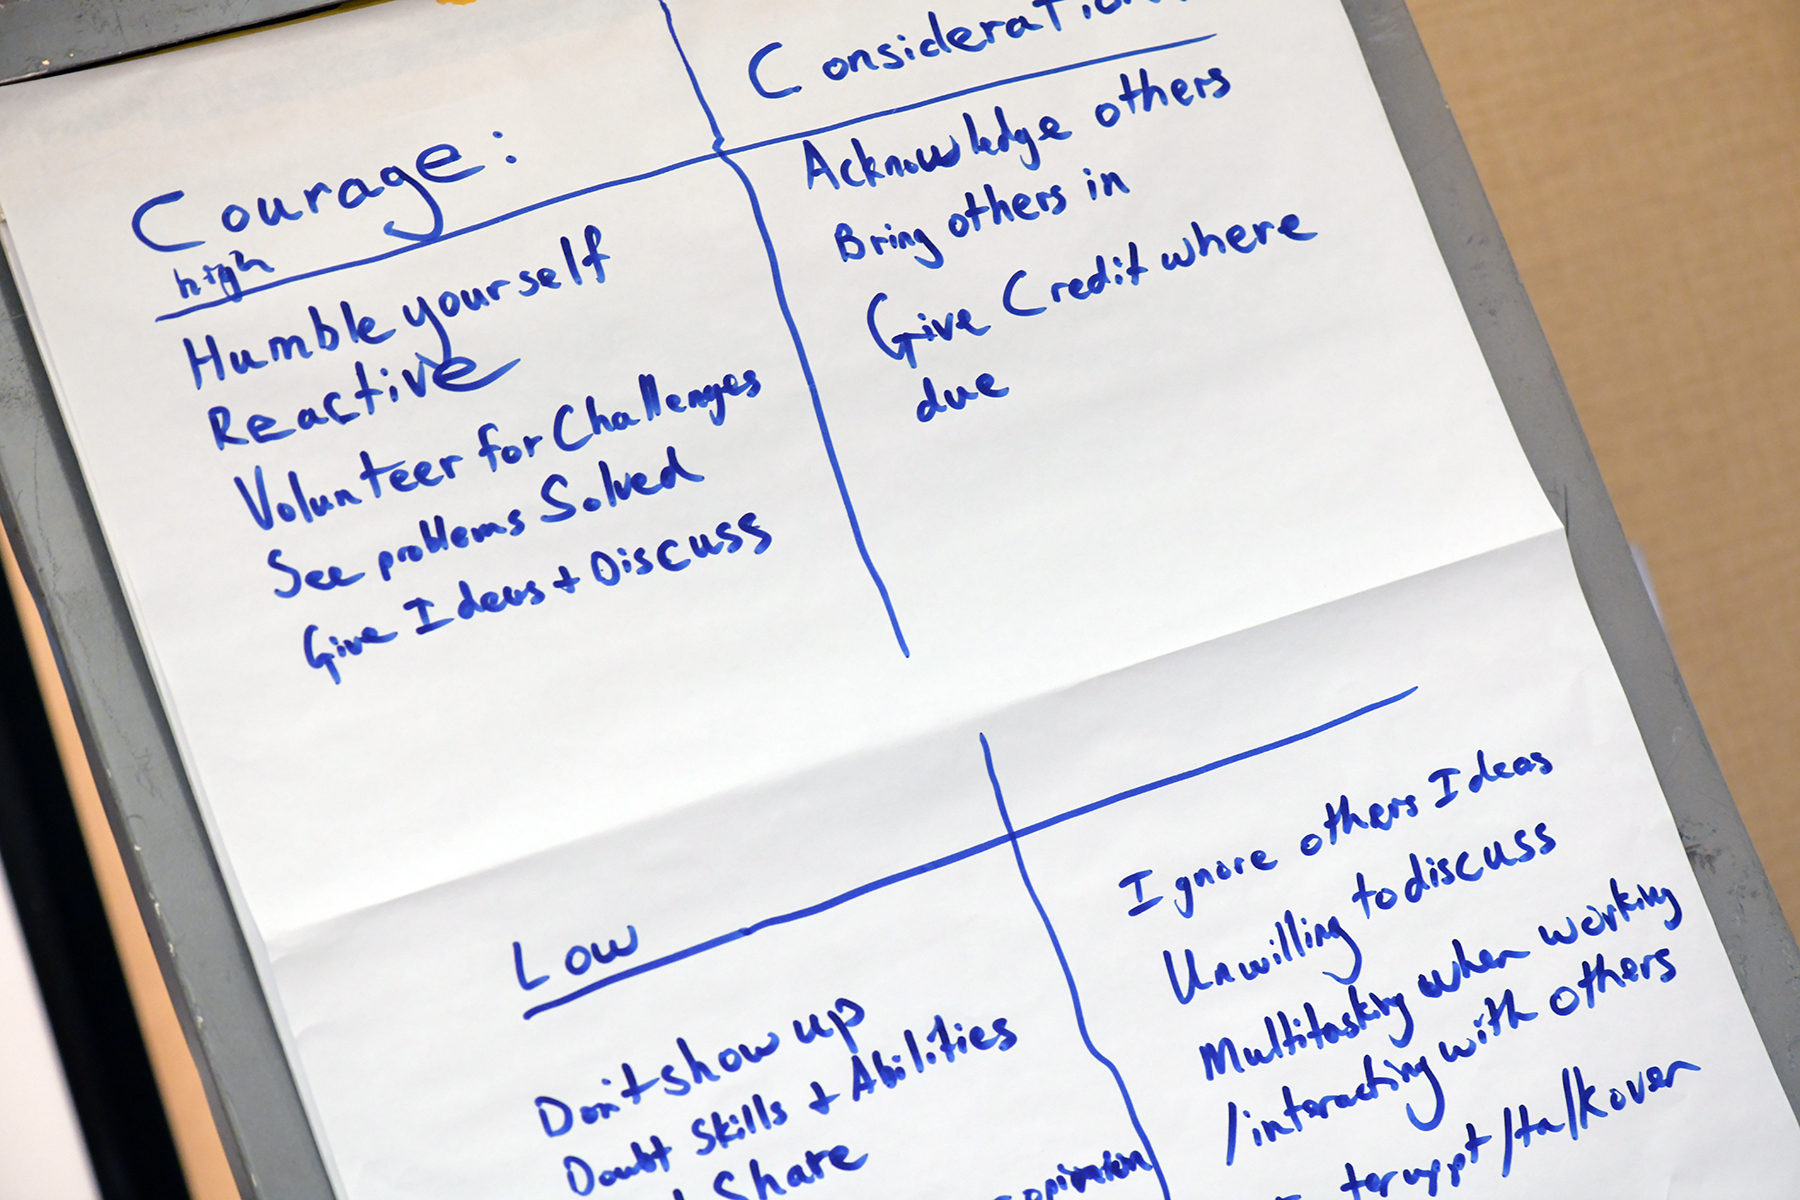 Courage:
high
Humble yourself
Reactive
Volunteer for Challenges
See problems Solved
Give Ideas + Discuss
Consideration
Acknowledge others
Bring others in
Give Credit where
due
Low
Don't show up
Doubt Skills + Abilities
Share
opinion
Ignore others Ideas
Unwilling to discuss
Multitasking when working
/interacting with others
teruppt/talkover